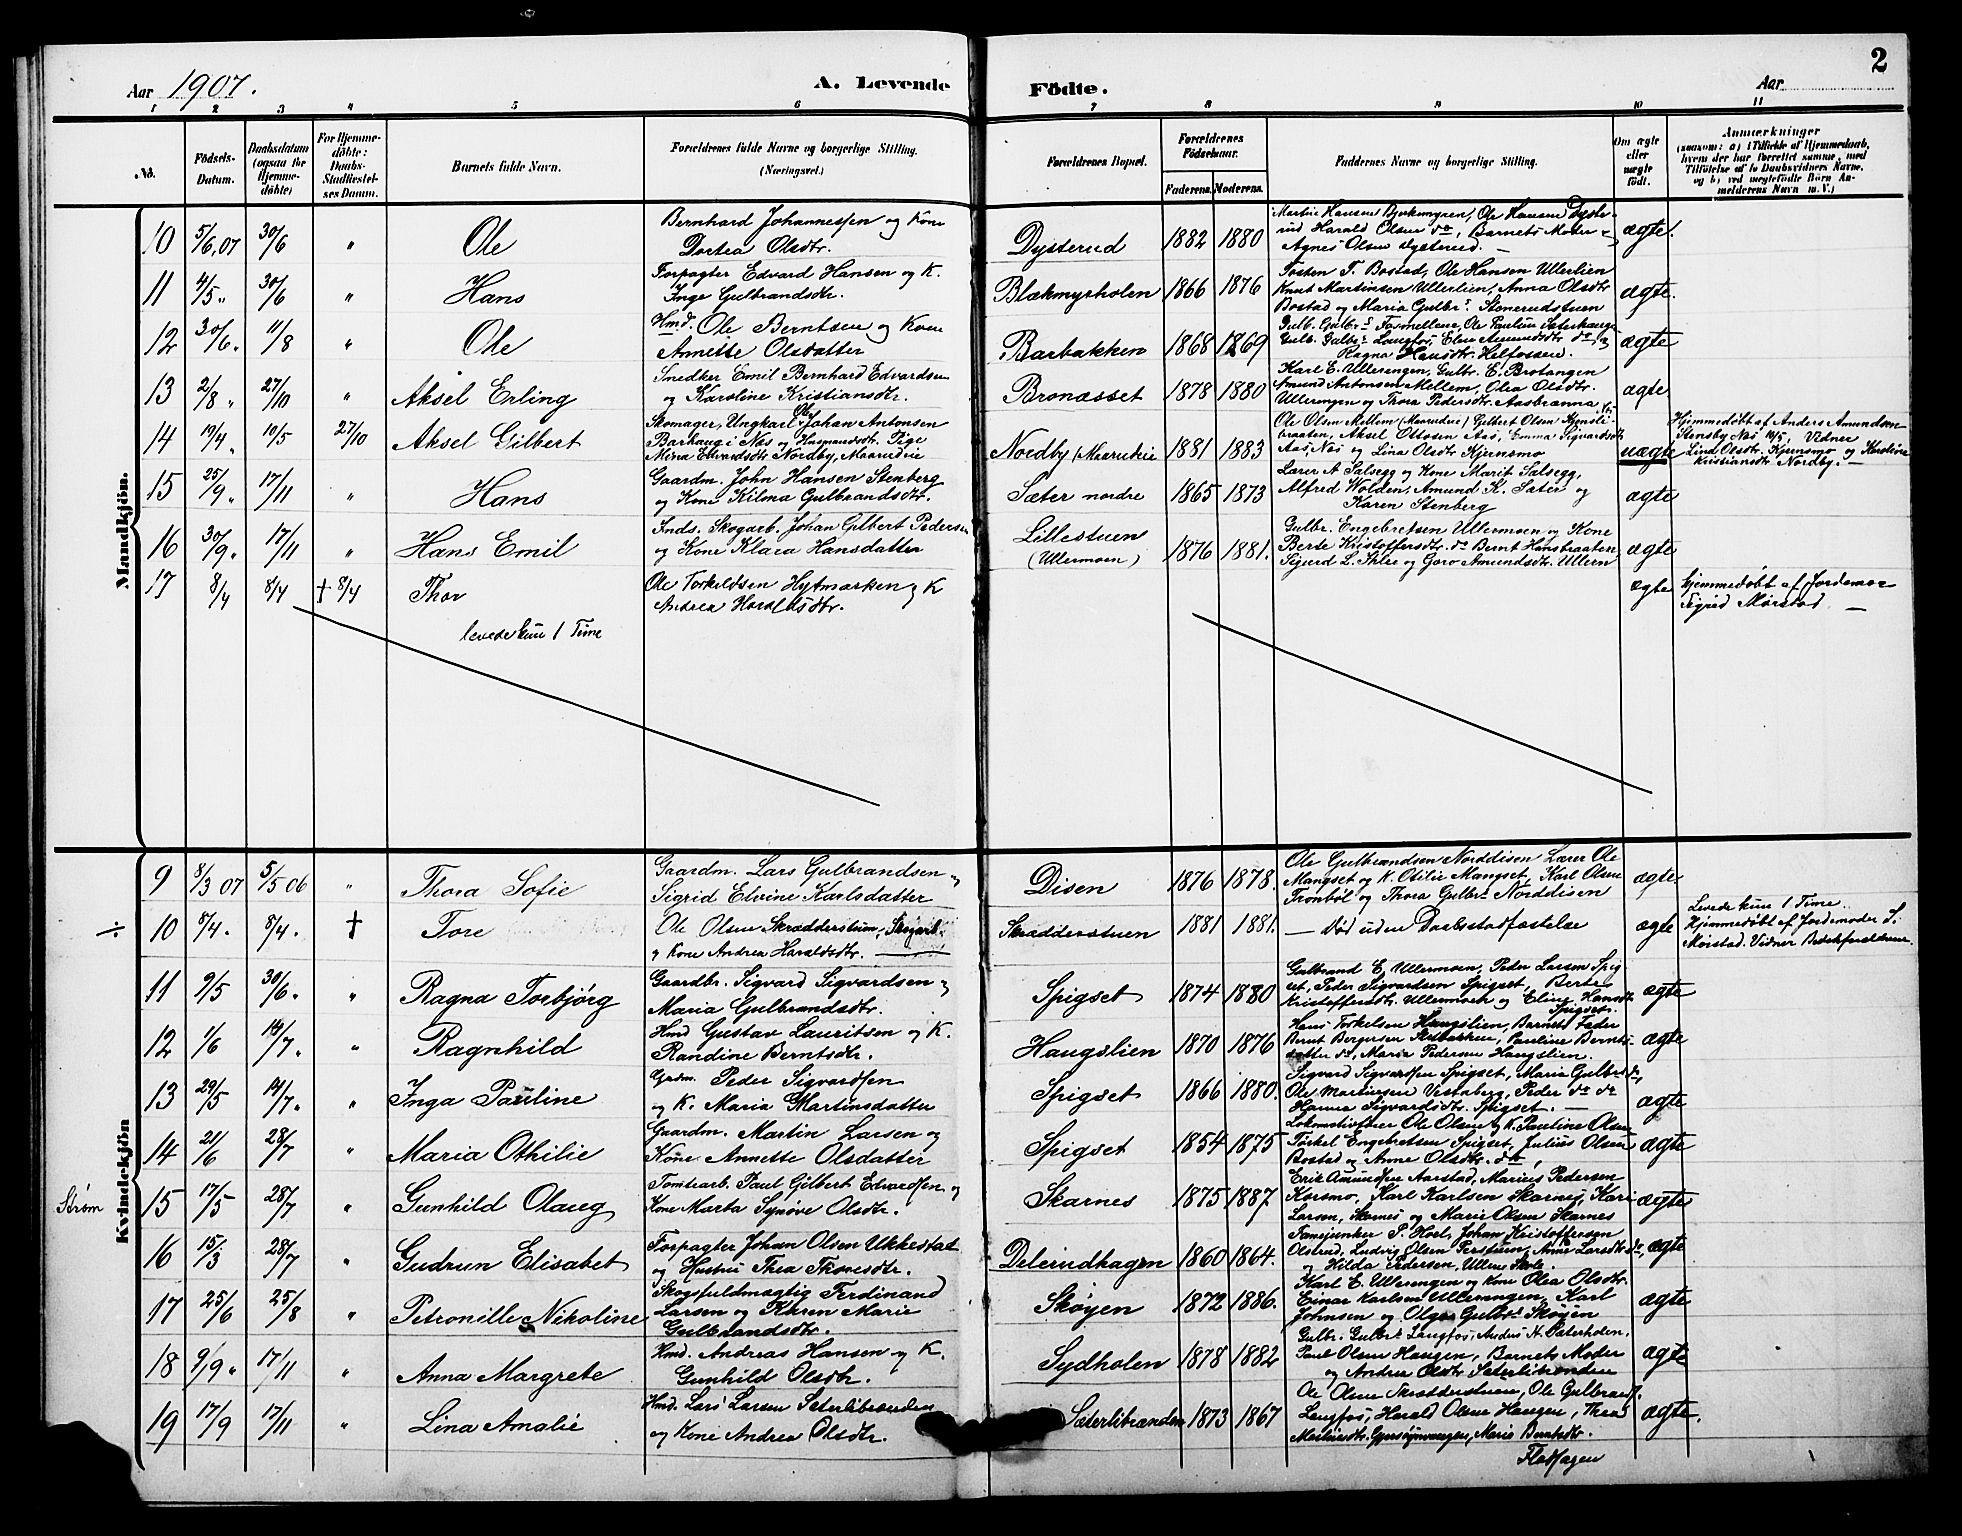 Aar 1907.
A. Levende
Födte.
Aar
2
1 2 3 4 5 6 7 8 9 10 11
No.
Födsels-
Datum.
Daabsdatum
(ogsaa for
Hjemme-
döbte)
For Hjemme-
döbte:
Daabs-
Stadfæstel-
ses Datum.
Barnets fulde Navn.
Forældrenes fulde Navne og borgerlige Stilling.
(Næringsvei.)
Forældrenes Bopæl.
Forældrenes
Födselsaar.
Faderens. Moderens.
Faddernes Navne og borgerlige Stilling.
Om ægte
eller
uægte
födt.
Anmærkninger
(saasom: a) i Tilfælde af Hjemmedaab,
hvem der har forrettet samme, med
Tilföielse af to Daabsvidners Navne,
og b) ved uægtefödte Börn An-
melderens Navn m. V.)
Mandkjön.
10 5/6 07 30/6 " Ole
Bernhard Johannessen og Kone
Dortea Olsdtr.
Dysterud 1882 1880
Martin Hansen Bjerkemyren, Ole Hansen Dyste-
rud Harald Olsen do, Barnets Moder
Agnes Olsen Dysterud. —
ægte.
11 4/5 " 30/6 " Hans
Forpagter Edvard Hansen og K.
Inge Gulbrandsdtr.
Blækmyrholen 1866 1876
Tosten T. Bostad, Ole Hansen Ullerlien
Knut Martinsen Ullerlien, Anna Olsdtr
Bostad og Maria Gulbr. Stenerudstuen
ægte.
12 30/6 " 11/8 " Ole
Hmd. Ole Berntsen og Kone
Annette Olsdatter
Barbakken 1868 1869
Gulb. Gulbr. Langfos, Elen Amundsdtr do, og
Ragna Hansdtr. Helfossen.
ægte
13 2/8 " 27/10 " Aksel Erling
Snedker Emil Bernhard Edvardsen
og Karoline Kristiansdtr.
Bronæsset 1878 1880
Karl E. Ullerengen, Gulbr. E. Brotangen
Amund Antonsen Mellem, Olea Olsdtr.
Ullerengen og Thora Pedersdtr. Aasbrænna
ægte
14 19/4 " 10/5 27/10 Aksel Gilbert
Skomager, Ungkarl Ole Johan Antonsen
Barhaug i Næs og Husmandsdtr. Pige
Mina Edvardsdtr Nordby, Maarudeie
Nordby (Maarudeie 1881 1883
Ole Olsen Mellem (Maarudeie) Gilbert Olsen Kjensli-
braaten, Aksel Ottosen Aas, Emma Sigvardsdtr
Aas, Næs og Lina Olsdtr Kjensmo
uægte
Hjemmedøbt af Anders Amundsen
Stensby Næs 10/5, Vidner
Lina Olsdtr. Kjensmo og Karoline
Kristiansdtr Nordby. —
15 25/9 " 17/11 " Hans
Gaardm. John Hansen Stenberg
og Kone Kilma Gulbrandsdtr.
Sæter nordre 1865 1873
Lærer A Salsegg og Kone Marit Salsegg.
Alfred Wolden, Amund K. Sæter og
Karen Stenberg
ægte
16 30/9 " 17/11 " Hans Emil
Inds. Skogarb. Johan Gilbert Pedersen
og Kone Klara Hansdatter
Lillestuen
(Ullermoen) 1876 1881.
Gulbr. Engebretsen Ullermoen og Kone
Berte Kristoffersdtr. do Bernt Hansbraaten
Sigurd L. Ihlre og Goro Amundsdtr. Ullern
ægte
17 8/4 8/4 † 8/4 Thor
levede kun 1 Time
Ole Torkeldsen Hytmarken og K
Andrea Haraldsdtr.
ægte
Hjemmedøbt af Jordemor
Sigrid Mørstad. —
Kvindekjön
9 8/3 07 5/5 06 " Thora Sofie
Gaardm. Lars Gulbrandsen og
Sigrid Elvine Karlsdatter
Disen 1876 1878.
Ole Gulbrandsen Norddisen Lærer Ole
Mangset og K. Otilie Mangset, Karl Olsen
Tronbøl og Thora Gulbr. Norddisen
ægte.
÷ 10 8/4. 8/4. † Tore
Ole Olsen Skrædderstuen,
og Kone Andrea Haraldsdtr. —
Skrædderstuen 1881 1881.
— Død uden Daabsstadfæstelse
ægte
Levede kun 1 Time.
Hjemmedøbt af Jordemoder S.
Mørstad. Vidner Bedsteforældrene.
11 9/5 30/6. " Ragna Torbjørg
Gaardbr. Sigvard Sigvardsen og
Maria Gulbrandsdtr.
Spigset 1874 1880
Gulbrand E. Ullermoen, Peder Larsen Spig
set, Peder Sigvardsen Spigset, Berte
Kristoffersdtr. Ullermoen og Eline Hansdtr
Spigset.
ægte
12 1/6 14/7. " Ragnhild
Hmd Gustav Lauritsen og K.
Randine Berntsdtr.
Haugslien 1870 1876
Hans Torkelsen Haugslien, Barnets Fader
Bernt Bergersen, Pauline Bernts-
datter do, Maria Pedersen Haugslien.
ægte
13 29/5 14/7. " Inga Pauline
Grdm. Peder Sigvardsen
og K. Maria Martinsdatter
Spigset 1866 1880.
Sigvard Sigvardsen Spigset, Maria Gulbr. do,
Ole Martinsen Vestaberg, Peder do do
Hanna Sigvardsdtr. Spigset. —
ægte
14 21/6 28/7 " Maria Othilie
Gaardm. Martin Larsen og
Kone Annette Olsdatter
Spigset 1854 1875
Lokomotivfører Ole Olsen og K. Pauline Olsen
Torkel Engebretsen Spigset, Julius Olsen
Bostad og Anne Olsdtr. do
ægte
Strøm 15 17/5 28/7 " Gunhild Olaug
Tomtearb. Paul Gilbert Edvardsen og
Kone Marta Synøve Olsdtr.
Skarnes 1875 1887.
Erik Amundsen Aarstad, Marius Pedersen
Korsmo, Karl Karlsen Skarnes, Kari
Larsen, Skarnes og Marie Olsen Skarnes
ægte
16 15/3 28/7 " Gudrun Elisabet
Forpagter Johan Olsen Ukkestad
og Hustru Thea Thoresdtr.
Delerudhagen 1860 1864.
Fanejunker P. Hoel, Johan Kristoffersen
Olsrud, Ludvig Olsen Perstuen, Anne Larsdtr do,
og Hilda Pedersen, Ullern Skole.
ægte
17 25/6 25/8 " Petronille Nikoline
Skogsfuldmægtig Ferdinand
Larsen og Karen Marie
Gulbrandsdtr.
Skøyen 1872 1886.
Karl E. Ullerengen og Kone Olea Olsdtr.
Einar Karlsen Ullerengen, Karl
Johnsen og Olga Gulbr. Skøyen
ægte
18 9/9 " 17/11 " Anna Margrete
Hmd. Andreas Hansen og K.
Gunhild Olsdtr.
Sydholen 1878 1882
Gulbr. Gulbr. Langfos, Anders H. Sæterholen.
Paul Olsen Haugen, Barnets Moder
og Andrea Olsdtr Sæterlibrænden
ægte
19 17/9 17/11 " Lina Amalie
Hmd. Lars Larsen Sæterlibrænden
og Kone Andrea Olsdtr.
Sæterlibrænden 1873 1867
Ole Olsen Skrædderstuen, Ole Gulbrands.
Langfos, Harald Olsen Haugen, Thea
Martinsdtr., Marie Berntsdtr.
Flathagen
ægte.